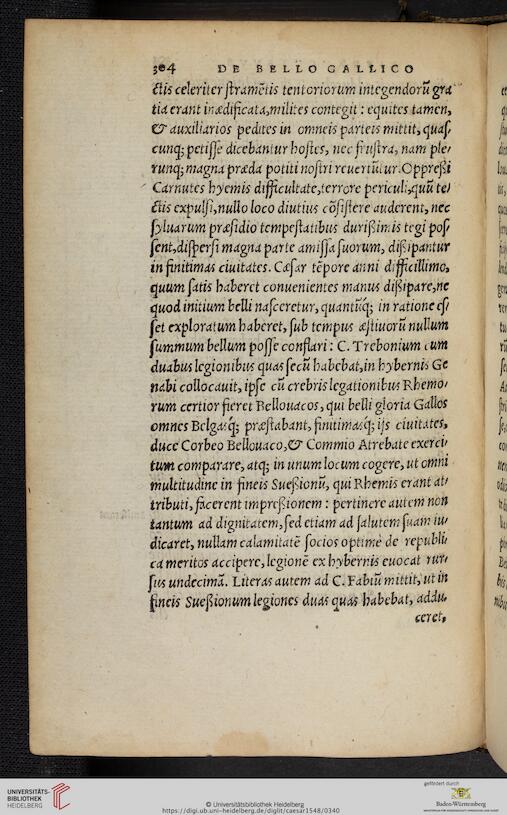 304 DE BELLO GALLICO
ctis celeriter stramẽtis tentoriorum integendorũ gra
tia erant inædificata, milites contegit : equites tamen,
& auxiliarios pedites in omneis parteis mittit, quas,
cunq; petisse dicebantur hostes, nec frustra, nam ple,
runq; magna præda potiti nostri revertũtur. Oppreßi
Carnutes hyemis difficultate, terrore periculi, quũ te,
ctis expulsi, nullo loco diutius cõsistere auderent, nec
syluarum præsidio tempestatibus durißimis tegi pos,
sent, dispersi magna parte amissa suorum, dißipantur
in finitimas ciuitates. Cæsar tẽpore anni difficillimo,
quum satis haberet conuenientes manus dißipare, ne
quod initium belli nasceretur, quantũq; in ratione es,
set exploratum haberet, sub tempus æstiuorũ nullum
summum bellum posse conflari : C. Trebonium cum
duabus legionibus quas secũ habebat, in hybernis Ge
nabi collocauit, ipse cũ crebris legationibus Rhemo,
rum certior fieret Bellouacos, qui belli gloria Gallos
omnes Belgasq́; præstabant, finitimasq́; ijs ciuitates,
duce Corbeo Bellouaco, & Commio Atrebate exerci,
tum comparare, atq; in unum locum cogere, ut omni
multitudine in fineis Sueßionũ, qui Rhemis erant at,
tributi, facerent impreßionem : pertinere autem non
tantum ad dignitatem, sed etiam ad salutem suam iu,
dicaret, nullam calamitatẽ socios optimè de republi,
ca meritos accipere, legionẽ ex hybernis euocat rur,
sus undecimã. Literas autem ad C. Fabiũ mittit, ut in
fineis Sueßionum legiones duas quas habebat, addu,
ceret,
UNIVERSITÄTS-
BIBLIOTHEK
HEIDELBERG
© Universitätsbibliothek Heidelberg
https://digi.ub.uni-heidelberg.de/diglit/caesar1548/0340
gefördert durch
Baden-Württemberg